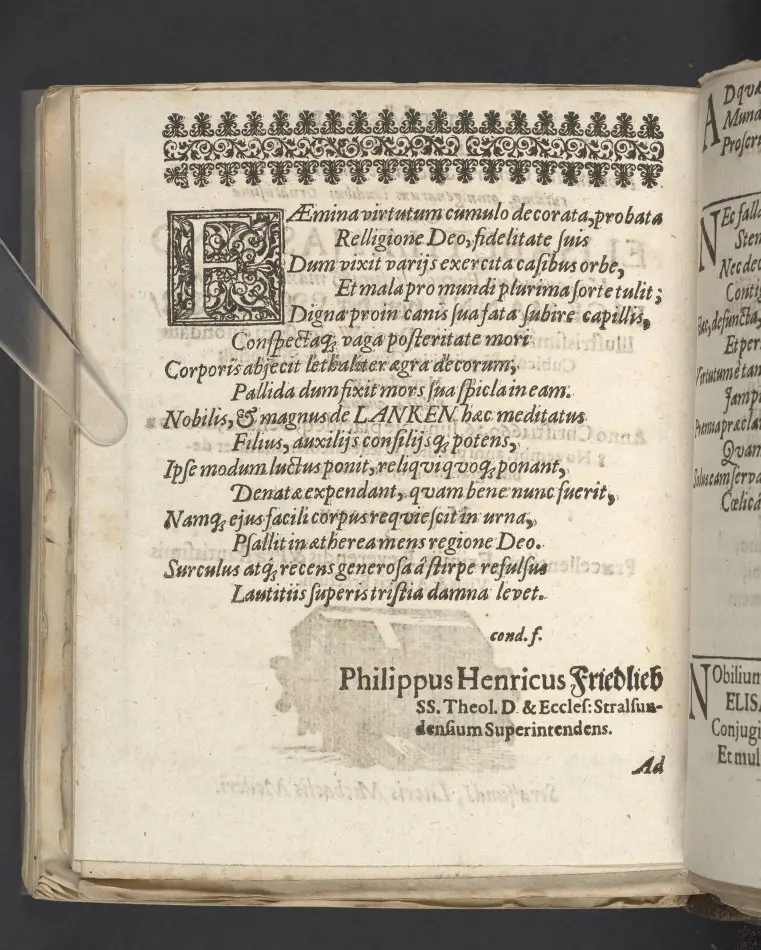 FÆmina virtutum cumulo decorata, probata
Relligione Deo, fidelitate suis
Dum vixit varijs exercita casibus orbe,
Et mala pro mundi plurima sorte tulit;
Digna proin canis sua fata subire capillis,
Conspectaq; vaga posteritate mori
Corporis abjecit lethaliter ægra decorum,
Pallida dum fixit mors sua spicla in eam.
Nobilis, & magnus de LANKEN hæc meditatus
Filius, auxilijs consilijsq; potens,
Ipse modum luctus ponit, reliqui qvoq; ponant,
Denatæ expendant, qvam bene nunc fuerit,
Namq; ejus facili corpus reqviescit in urna,
Psallit in ætherea mens regione Deo.
Surculus atq; recens generosa â stirpe refulsus
Lautitiis superis tristia damna levet.
cond. f.
Philippus Henricus Friedlieb
SS. Theol. D. & Eccles: Stralsun-
densium Superintendens.
Ad
ADqva
Muna
Proseru
NEc falla
Sten
Nec dec
Contig
Hac, defuncta,
Et per
Virtutum etan
Jamp
Præmia præclar
Qvam
Salus eam serva
Cœlica
NObilium
ELISA
Conjugi
Et mul